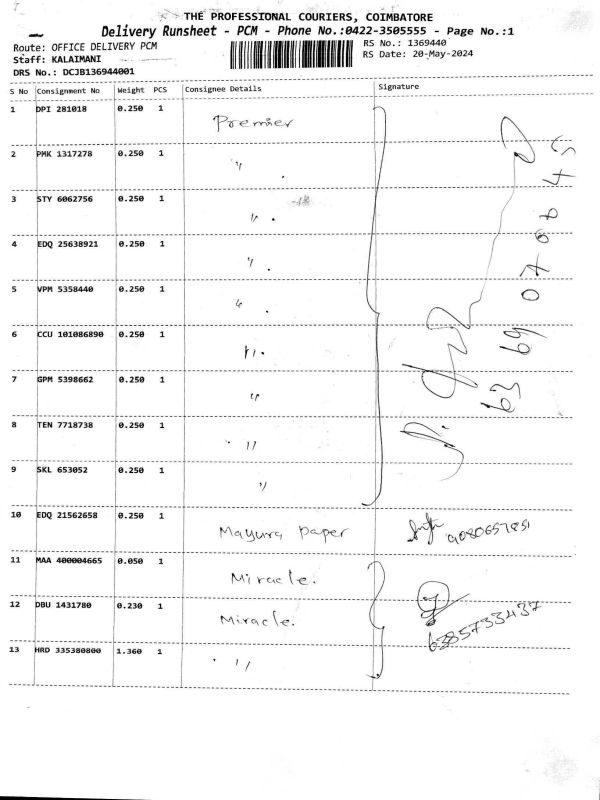 THE PROFESSIONAL COURIERS, COIMBATORE
Delivery Runsheet - PCM - Phone No.:0422-3505555 - Page No.:1
Route: OFFICE DELIVERY PCM
RS No.: 1369440
Staff: KALAIMANI
RS Date: 20-May-2024
DRS No.: DCJB136944001
S No Consignment No Weight PCS Consignee Details Signature
1 DPI 281018 0.250 1 Premier
2 PMK 1317278 0.250 1 "
3 STY 6062756 0.250 1 "
4 EDQ 25638921 0.250 1 "
5 VPM 5358440 0.250 1 "
6 CCU 101086890 0.250 1 "
7 GPM 5398662 0.250 1 "
8 TEN 7718738 0.250 1 "
9 SKL 653052 0.250 1 "
63 69 07 06 45
10 EDQ 21562658 0.250 1 Mayura paper 9080657851
11 MAA 400004665 0.050 1 Miracle.
12 DBU 1431780 0.230 1 Miracle. 6385733437
13 HRD 335380800 1.360 1 "